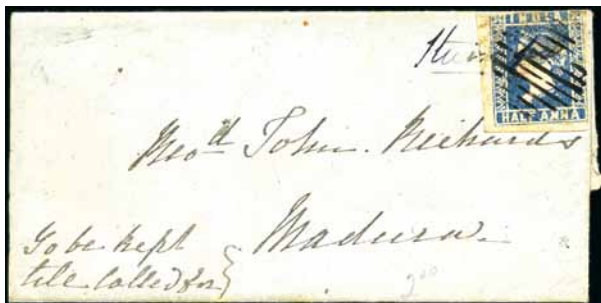 INDIA
HALF ANNA
Revd John Richards
Madura
To be kept
till called for
200